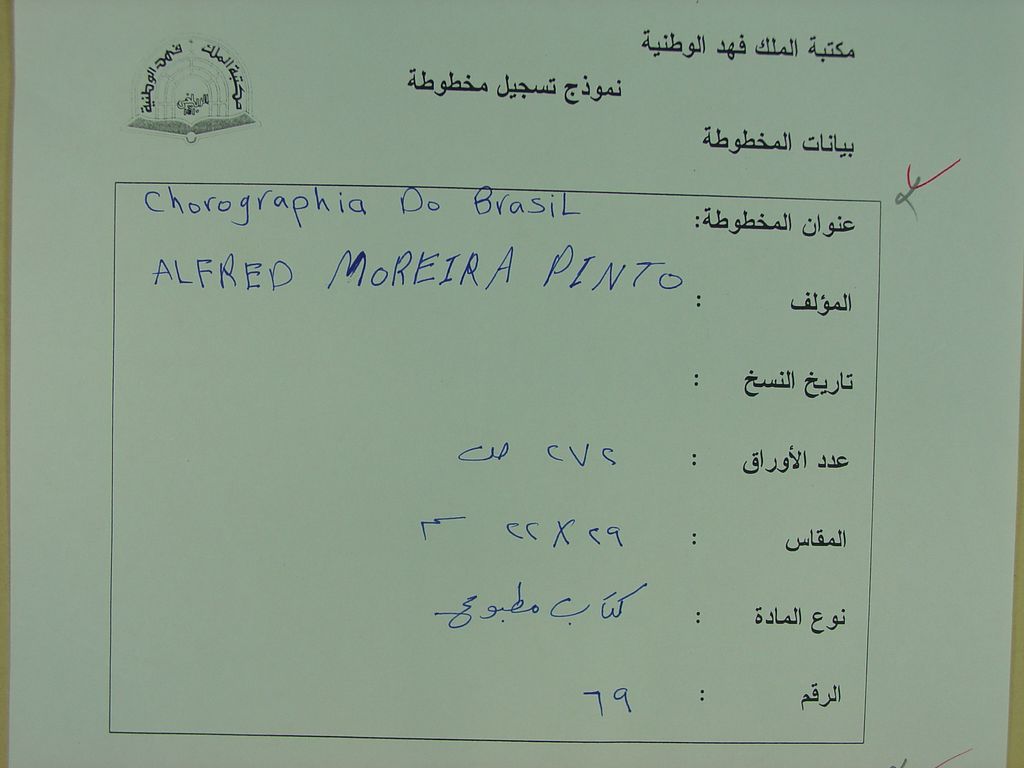 مكتبة الملك فهد الوطنية
مكتبة الملك فهد الوطنية
نموذج تسجيل مخطوطة
بيانات المخطوطة
عنوان المخطوطة: Chorographia Do BrasiL
المؤلف : ALFRED MOREIRA PINTO
تاريخ النسخ :
عدد الأوراق : ٢٧٢ ص
المقاس : ٢٩ X ٢٢ سم
نوع المادة : كتاب مطبوع
الرقم : ٦٩